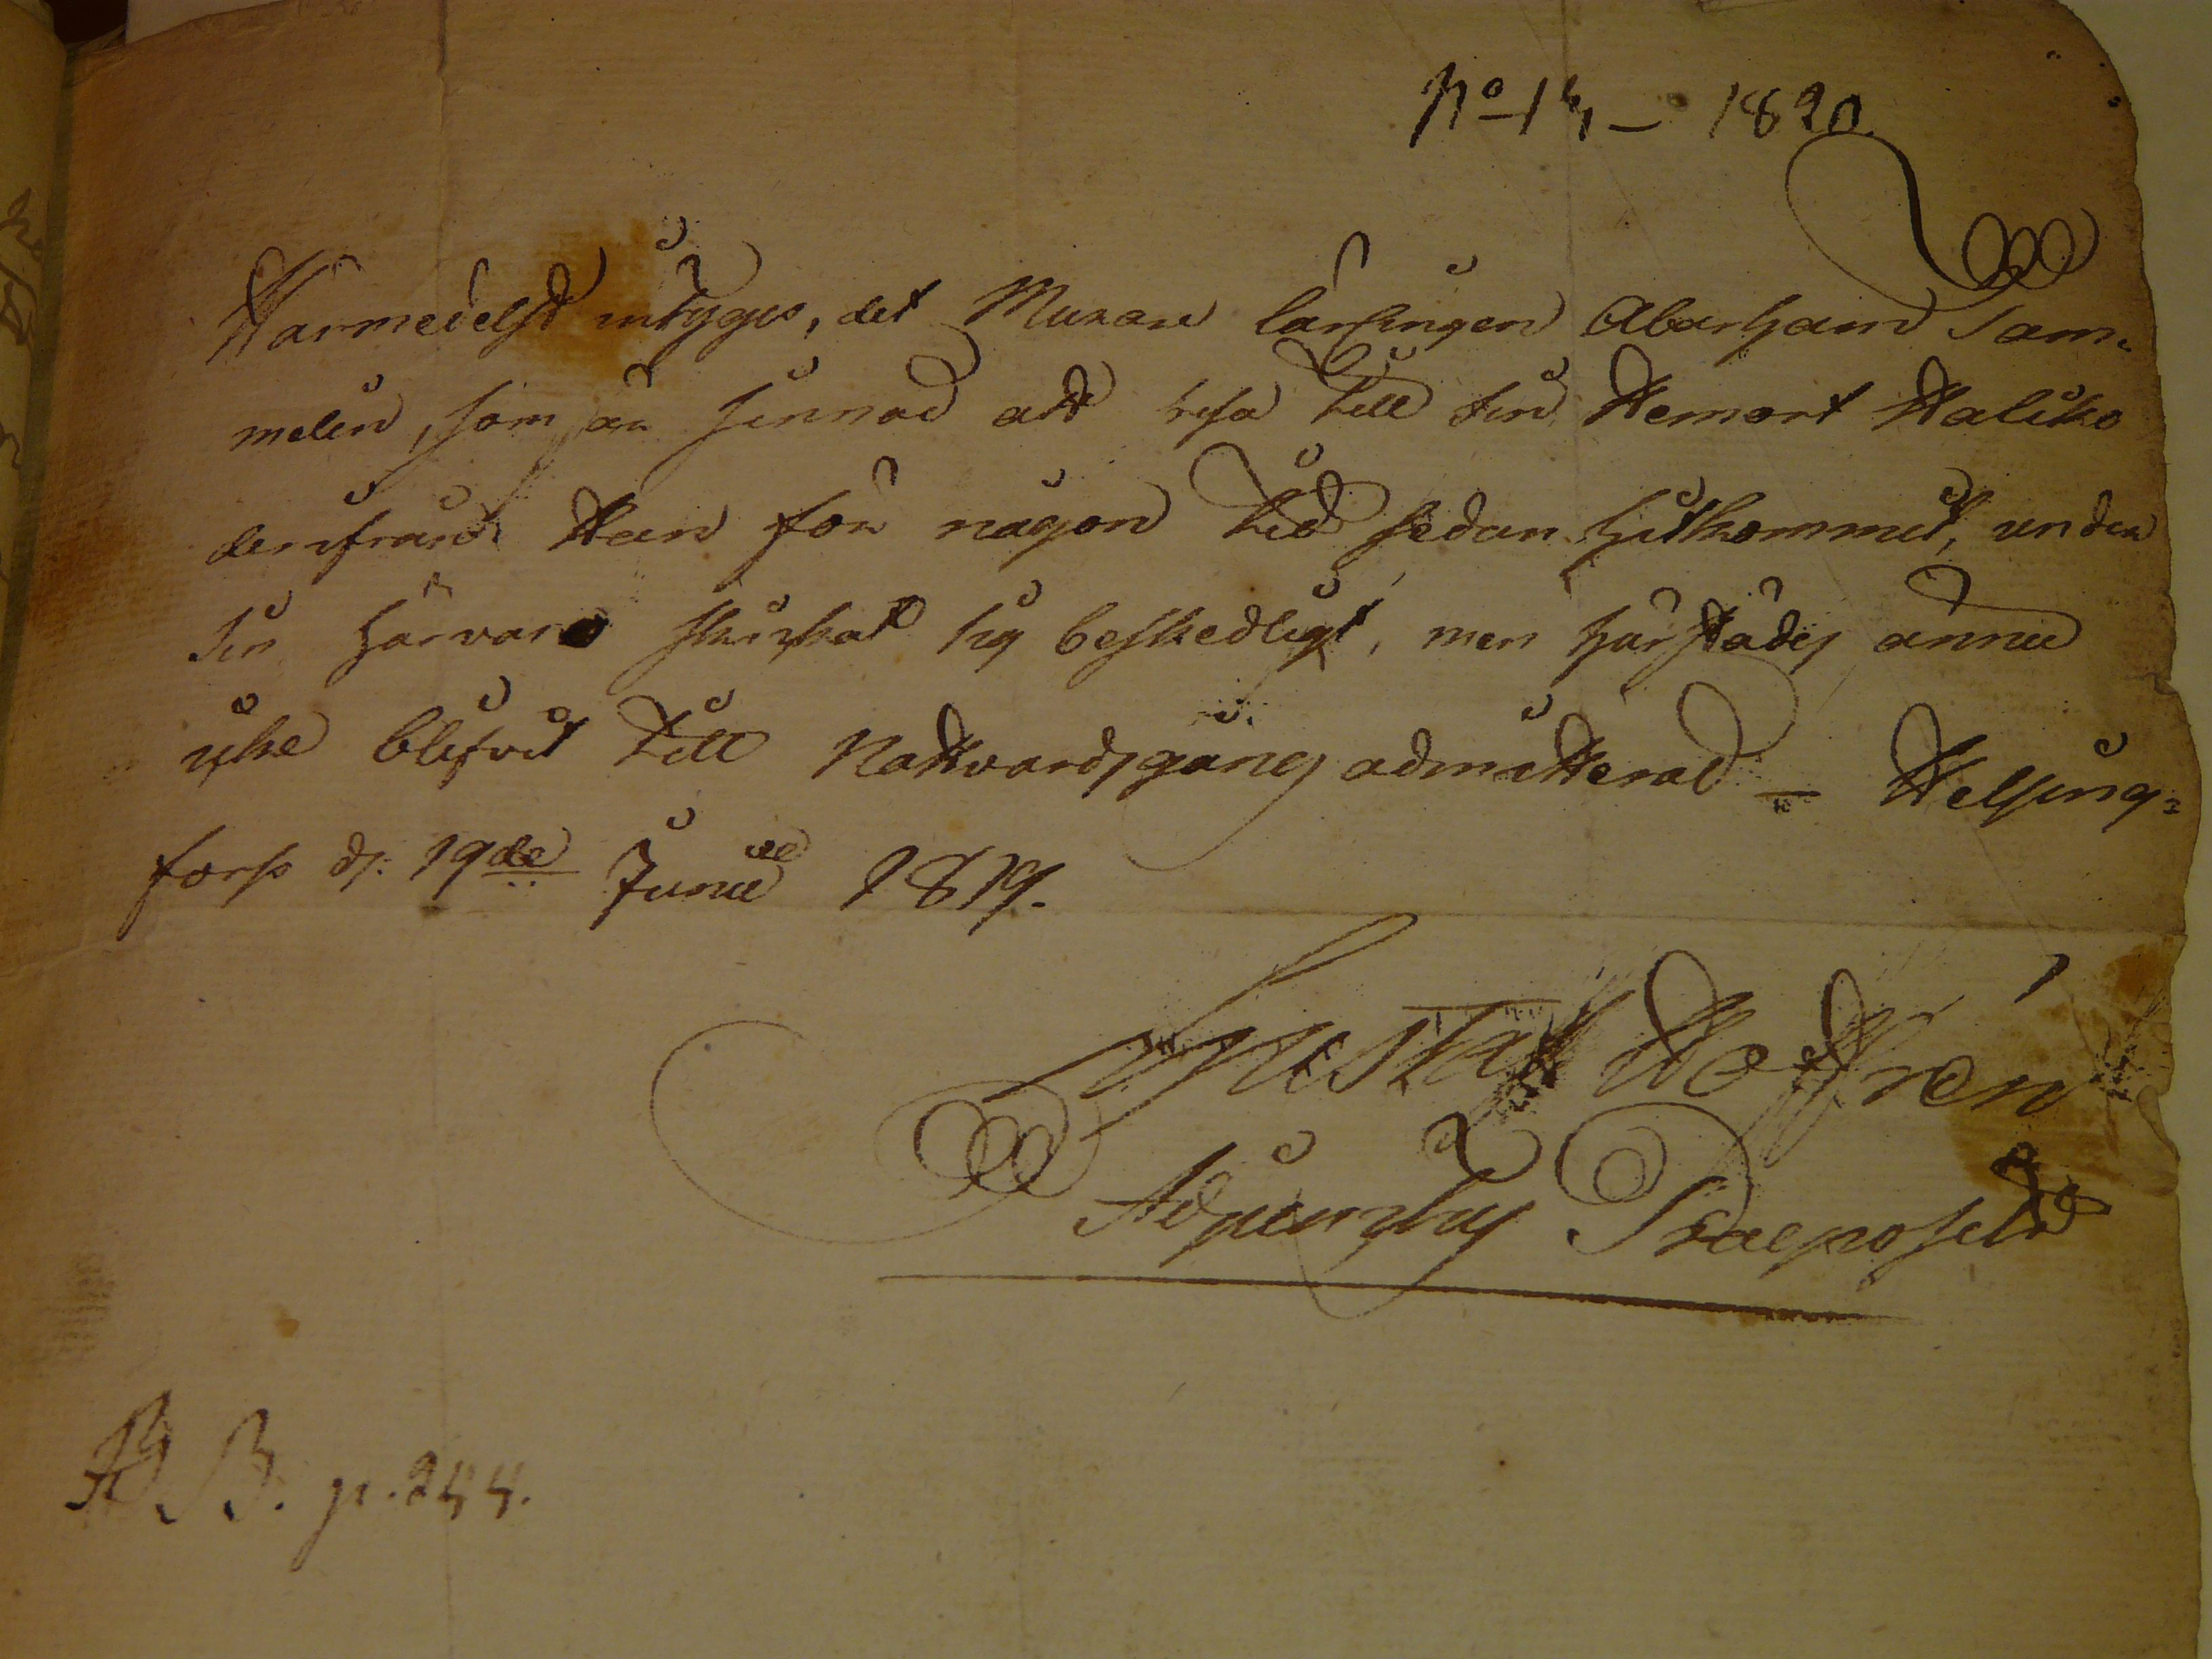 No 14 – 1820
Härmedelst intygas, det Murare lärlingen Abarham Tam-
melin, som är sinnad att resa till sin Hemort Kaliko
derifrån Han för någon tid sedan hitkommit, under
sin härvaro skickat sig beskedligt, men härstädes ännu
icke blifvit till Nattvardsgång admitterad – Helsing-
fors d. 19de Junii 1819.
Gustaf
Adjunctus Praeposit
p. 244.